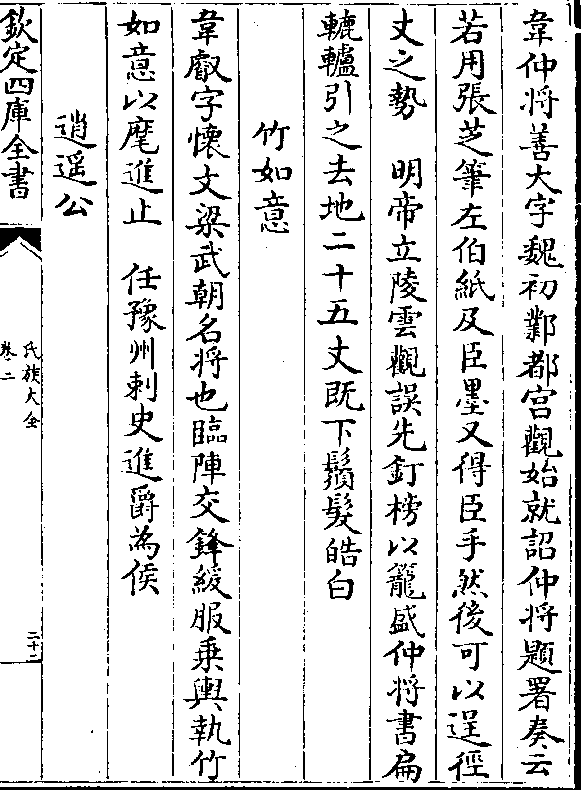 韋仲将善大字魏初鄴都宫觀始就詔仲将題署奏云
若用張芝筆左伯紙及臣墨又得臣手然後可以逞徑
丈之勢　明帝立陵雲觀誤先釘榜以籠盛仲将書扁
轆轤引之去地二十五丈既下鬚髮皓白
竹如意
韋叡字懷文梁武朝名将也臨陣交鋒緩服乗輿執竹
如意以麾進止　任豫州刺史進爵為侯
逍遥公
欽定四庫全書
氏族大全
卷二
二十二